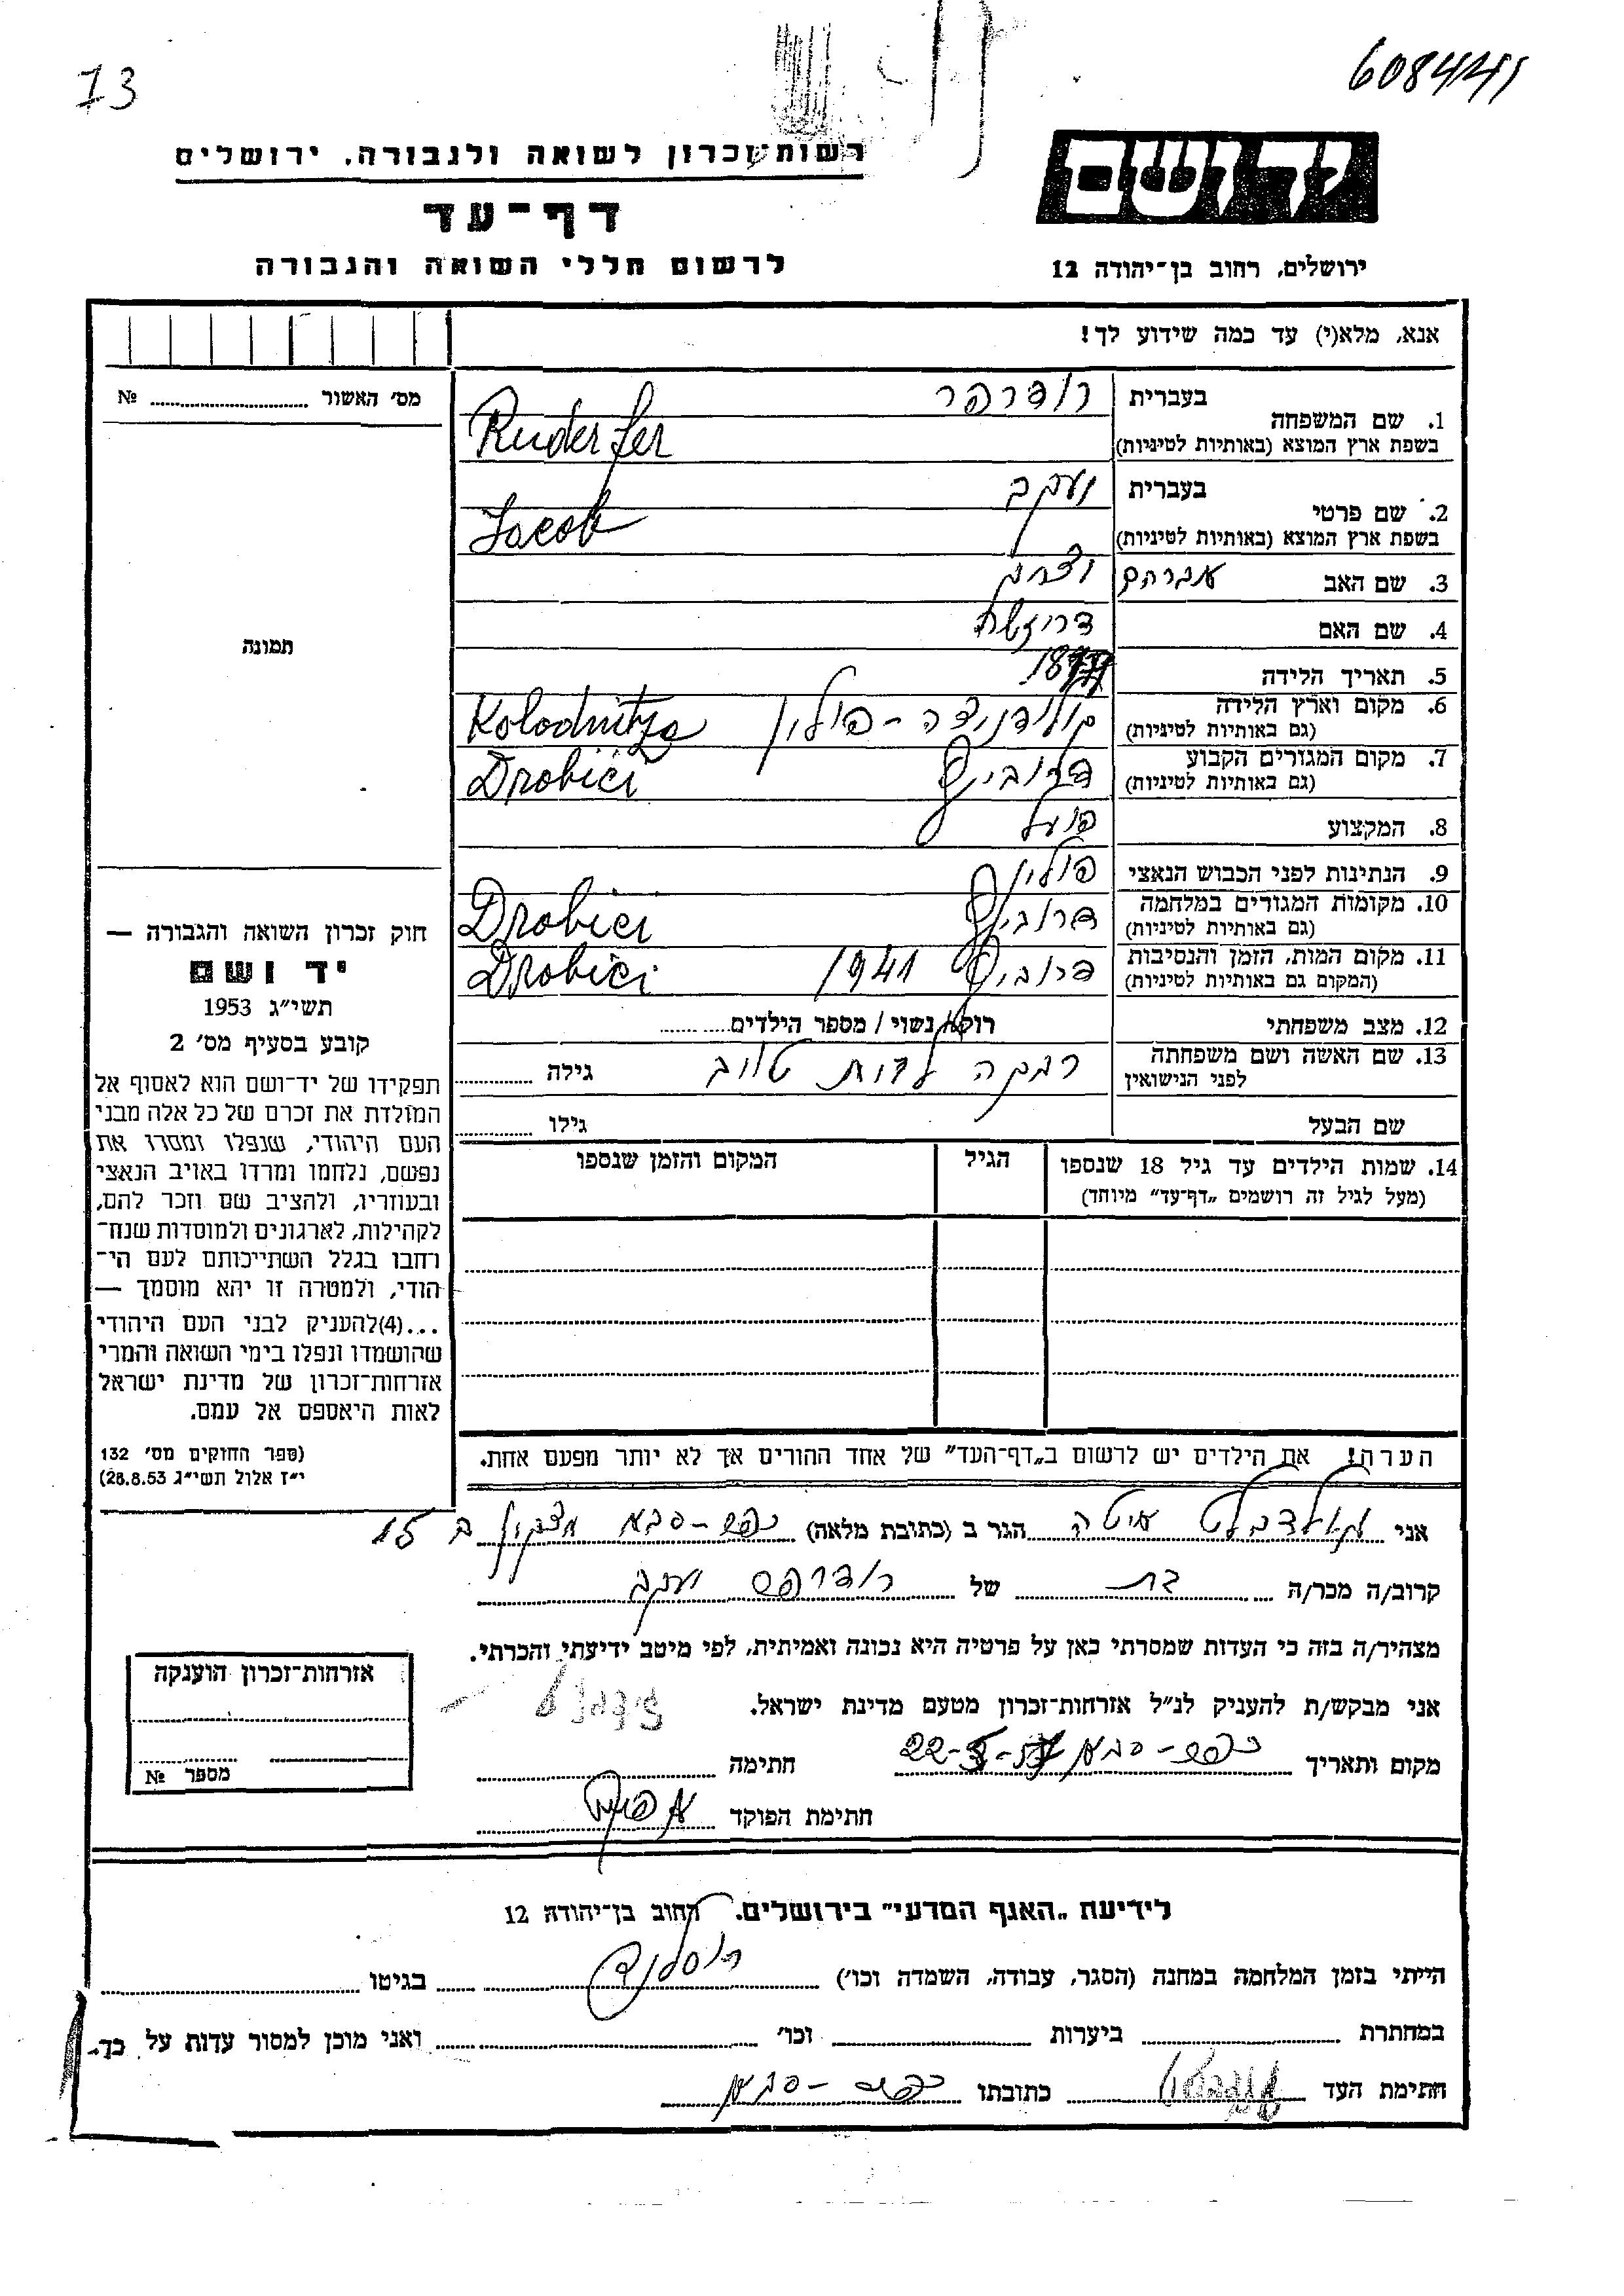 73
608441
רשות־זכרון לשואה ולגבורה, ירושלים
דף־עד
לרשום חללי השואה והגבורה
יד ושם
ירושלים, רחוב בן־יהודה 12
אנא, מלא(י) עד כמה שידוע לך!
מס׳ האשור № ..........
תמונה
1. שם המשפחה
בעברית רודרפר
בשפת ארץ המוצא (באותיות לטיניות) Ruderfer
2. שם פרטי
בעברית יעקב
בשפת ארץ המוצא (באותיות לטיניות) Jacob
3. שם האב אברהם יצחק
4. שם האם
5. תאריך הלידה
6. מקום וארץ הלידה
(גם באותיות לטיניות) קולודניצה - פולין Kolodnitza
7. מקום המגורים הקבוע
(גם באותיות לטיניות) Drobici
8. המקצוע פועל
9. הנתינות לפני הכבוש הנאצי פולין
10. מקומות המגורים במלחמה
(גם באותיות לטיניות) Drobici
11. מקום המות, הזמן והנסיבות
(המקום גם באותיות לטיניות) 1941 Drobici
12. מצב משפחתי רוק/נשוי / מספר הילדים..........
13. שם האשה ושם משפחתה
לפני הנישואין רבקה לבית גילה ..........
שם הבעל גילו ..........
14. שמות הילדים עד גיל 18 שנספו
(מעל לגיל זה רושמים „דף־עד״ מיוחד)
הגיל
המקום והזמן שנספו
חוק זכרון השואה והגבורה —
יד ושם
תשי״ג 1953
קובע בסעיף מס׳ 2
תפקידו של יד־ושם הוא לאסוף אל
המולדת את זכרם של כל אלה מבני
העם היהודי, שנפלו ומסרו את
נפשם, נלחמו ומרדו באויב הנאצי
ובעוזריו, ולהציב שם וזכר להם,
לקהילות, לארגונים ולמוסדות שנח־
רחבו בגלל השתייכותם לעם הי־
הודי, ולמטרה זו יהא מוסמך —
...(4)להעניק לבני העם היהודי
שהושמדו ונפלו בימי השואה והמרי
אזרחות־זכרון של מדינת ישראל
לאות היאספם אל עמם.
(ספר החוקים מס׳ 132
י״ז אלול תשי״ג 28.8.53)
הערה! את הילדים יש לרשום ב„דף־העד״ של אחד ההורים אך לא יותר מפעם אחת.
אני גולדבלט איטה הגר ב (כתובת מלאה) כפר-סבא ב 15
קרוב/ה מכר/ה ... בת של רודרפר יעקב
מצהיר/ה בזה כי העדות שמסרתי כאן על פרטיה היא נכונה ואמיתית, לפי מיטב ידיעתי והכרתי.
אני מבקש/ת להעניק לנ״ל אזרחות־זכרון מטעם מדינת ישראל.
מקום ותאריך כפר-סבא חתימה ..........
חתימת הפוקד
אזרחות־זכרון הוענקה
מספר №
לידיעת „האגף המדעי״ בירושלים. רחוב בן־יהודה 12
הייתי בזמן המלחמה במחנה (הסגר, עבודה, השמדה וכו׳) .......... בגיטו ..........
במחתרת .......... ביערות .......... וכו׳ .......... ואני מוכן למסור עדות על כך.
חתימת העד .......... כתובתו כפר-סבא